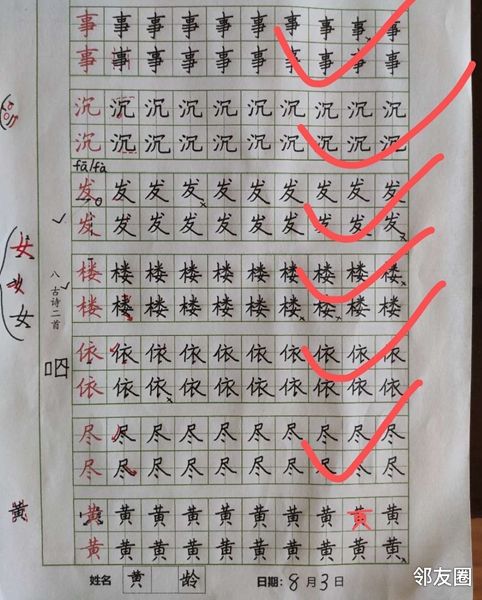 事 事 事 事 事 事 事 事 事 事
事 事 事 事 事 事 事 事 事 事
沉 沉 沉 沉 沉 沉 沉 沉 沉 沉
沉 沉 沉 沉 沉 沉 沉 沉 沉 沉
fā/fà
发 发 发 发 发 发 发 发 发 发
发 发 发 发 发 发 发 发 发 发
女
女
八 古诗二首
楼 楼 楼 楼 楼 楼 楼 楼 楼 楼
楼 楼 楼 楼 楼 楼 楼 楼 楼 楼
依 依 依 依 依 依 依 依 依 依
咽
依 依 依 依 依 依 依 依 依 依
尽 尽 尽 尽 尽 尽 尽 尽 尽 尽
尽 尽 尽 尽 尽 尽 尽 尽 尽 尽
黄 黄 黄 黄 黄 黄 黄 黄 黄 黄 黄
黄 黄 黄 黄 黄 黄 黄 黄 黄 黄
姓名 黄 龄 日期: 8 月 3 日
邻友圈